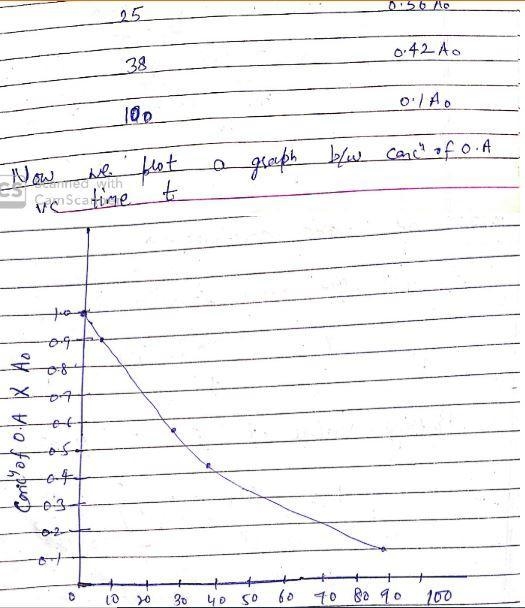 25 0.56 A0
38 0.42 A0
100 0.1 A0
Now we plot a graph b/w concⁿ of O.A
vs time t
CS Scanned with
CamScanner
Concⁿ of O.A X A0
1.0
0.9
0.8
0.7
0.6
0.5
0.4
0.3
0.2
0.1
0 10 20 30 40 50 60 70 80 90 100